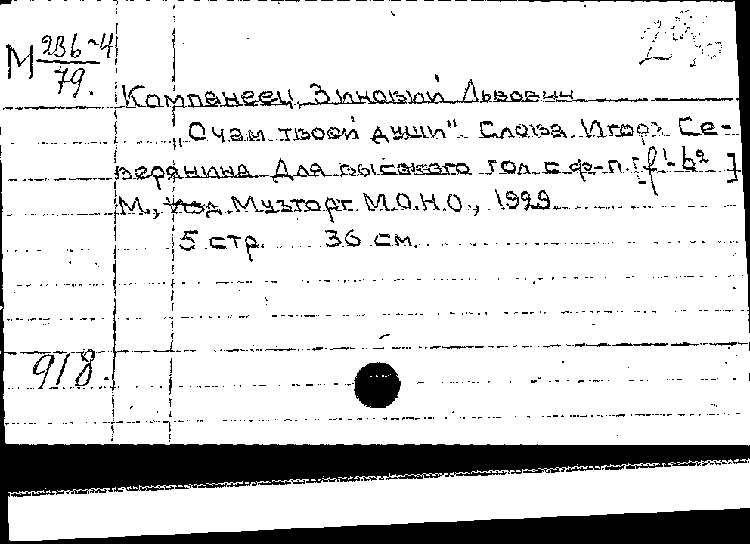 М 236-4
79.
Компанеец, Зиновий Львович
„Очам твоей души". Слова Игоря Се-
верянина. Для высокого гол. с ф-п. [f¹-b²]
М., Изд. Музторг М.О.Н.О., 1929.
5 стр. 36 см.
918.